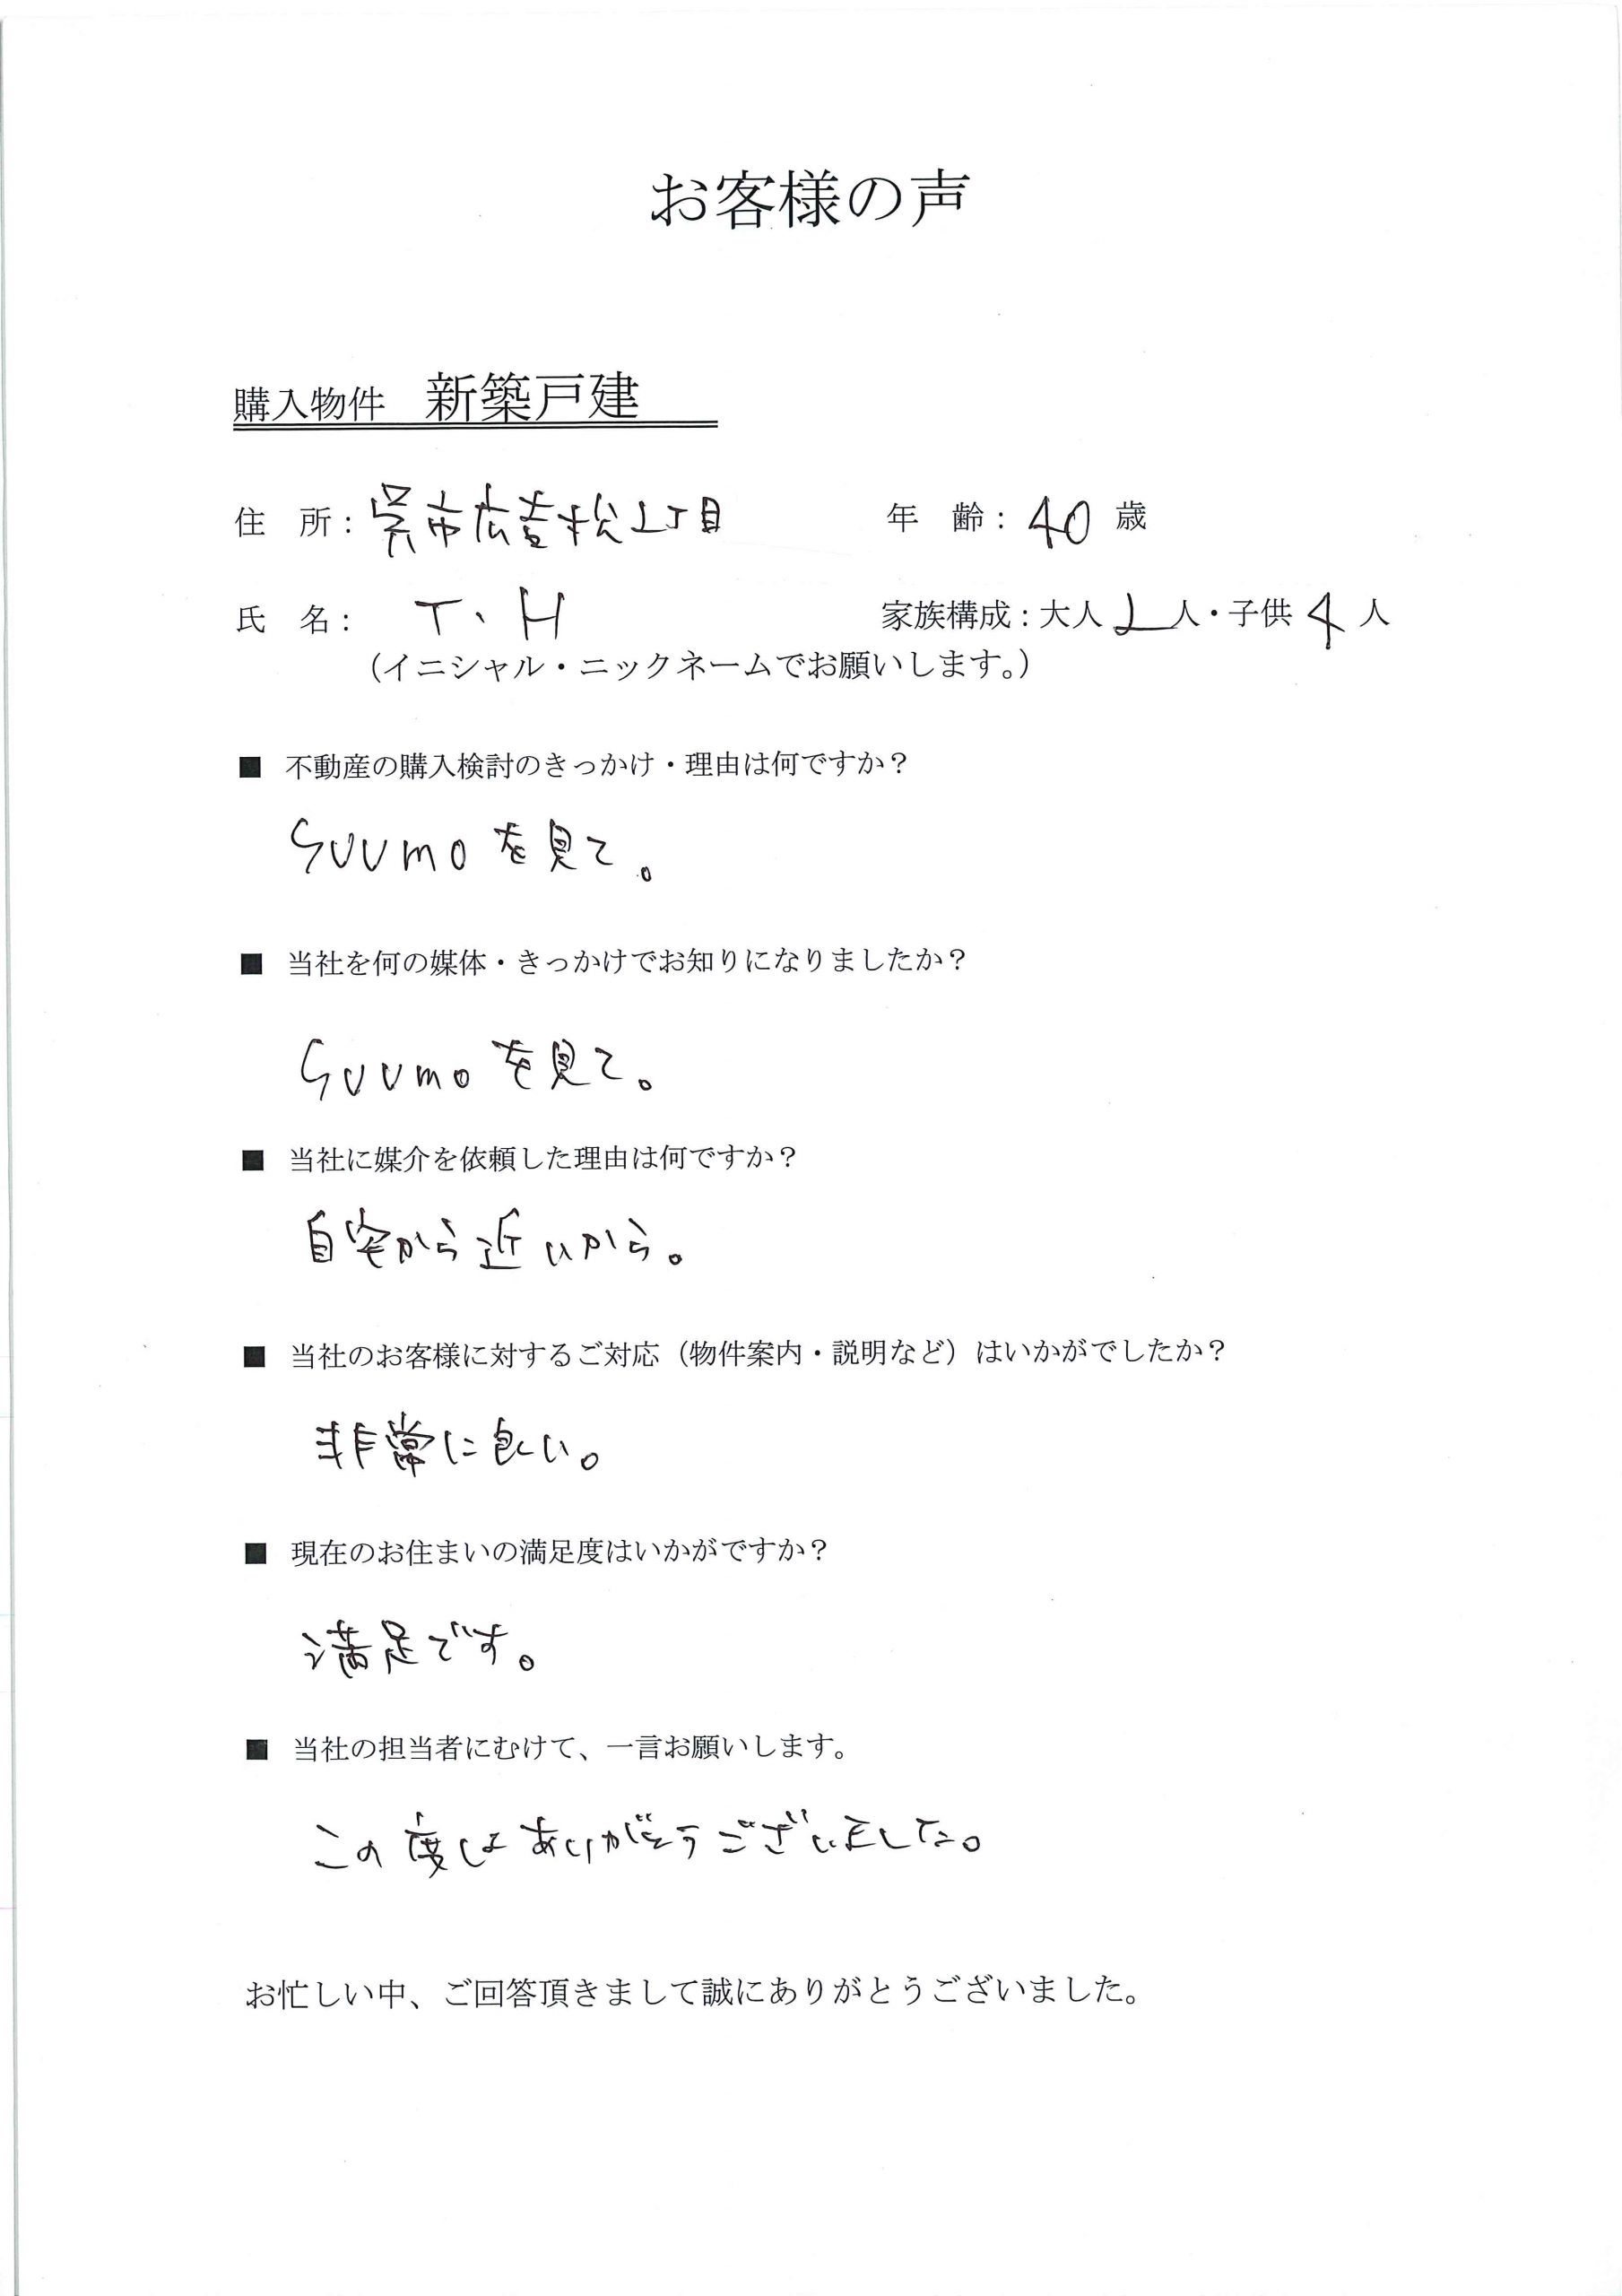 お客様の声
購入物件 新築戸建
住 所：呉市広吉松2丁目 年 齢：40 歳
氏 名： T、H 家族構成：大人 2人・子供 4 人
（イニシャル・ニックネームでお願いします。）
■ 不動産の購入検討のきっかけ・理由は何ですか？
SUUMOを見て。
■ 当社を何の媒体・きっかけでお知りになりましたか？
SUUMOを見て。
■ 当社に媒介を依頼した理由は何ですか？
自宅から近いから。
■ 当社のお客様に対するご対応（物件案内・説明など）はいかがでしたか？
非常に良い。
■ 現在のお住まいの満足度はいかがですか？
満足です。
■ 当社の担当者にむけて、一言お願いします。
この度はありがとうございました。
お忙しい中、ご回答頂きまして誠にありがとうございました。